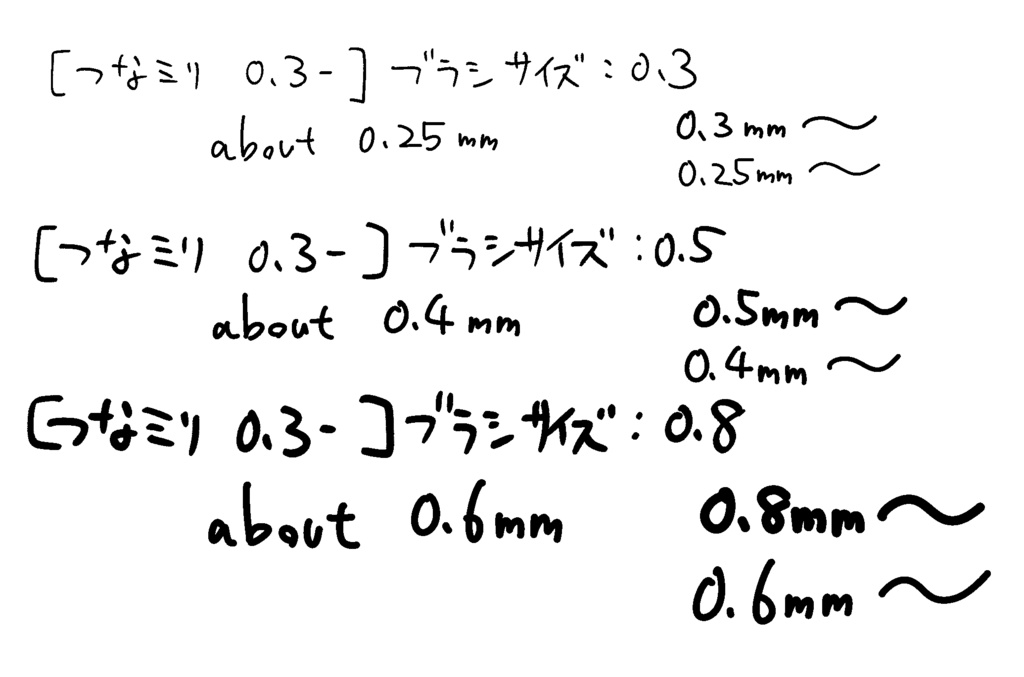 [つなミリ 0.3-] ブラシサイズ:0.3
about 0.25mm
0.3mm 〜
0.25mm 〜
[つなミリ 0.3-] ブラシサイズ:0.5
about 0.4mm
0.5mm 〜
0.4mm 〜
[つなミリ 0.3-] ブラシサイズ:0.8
about 0.6mm
0.8mm 〜
0.6mm 〜